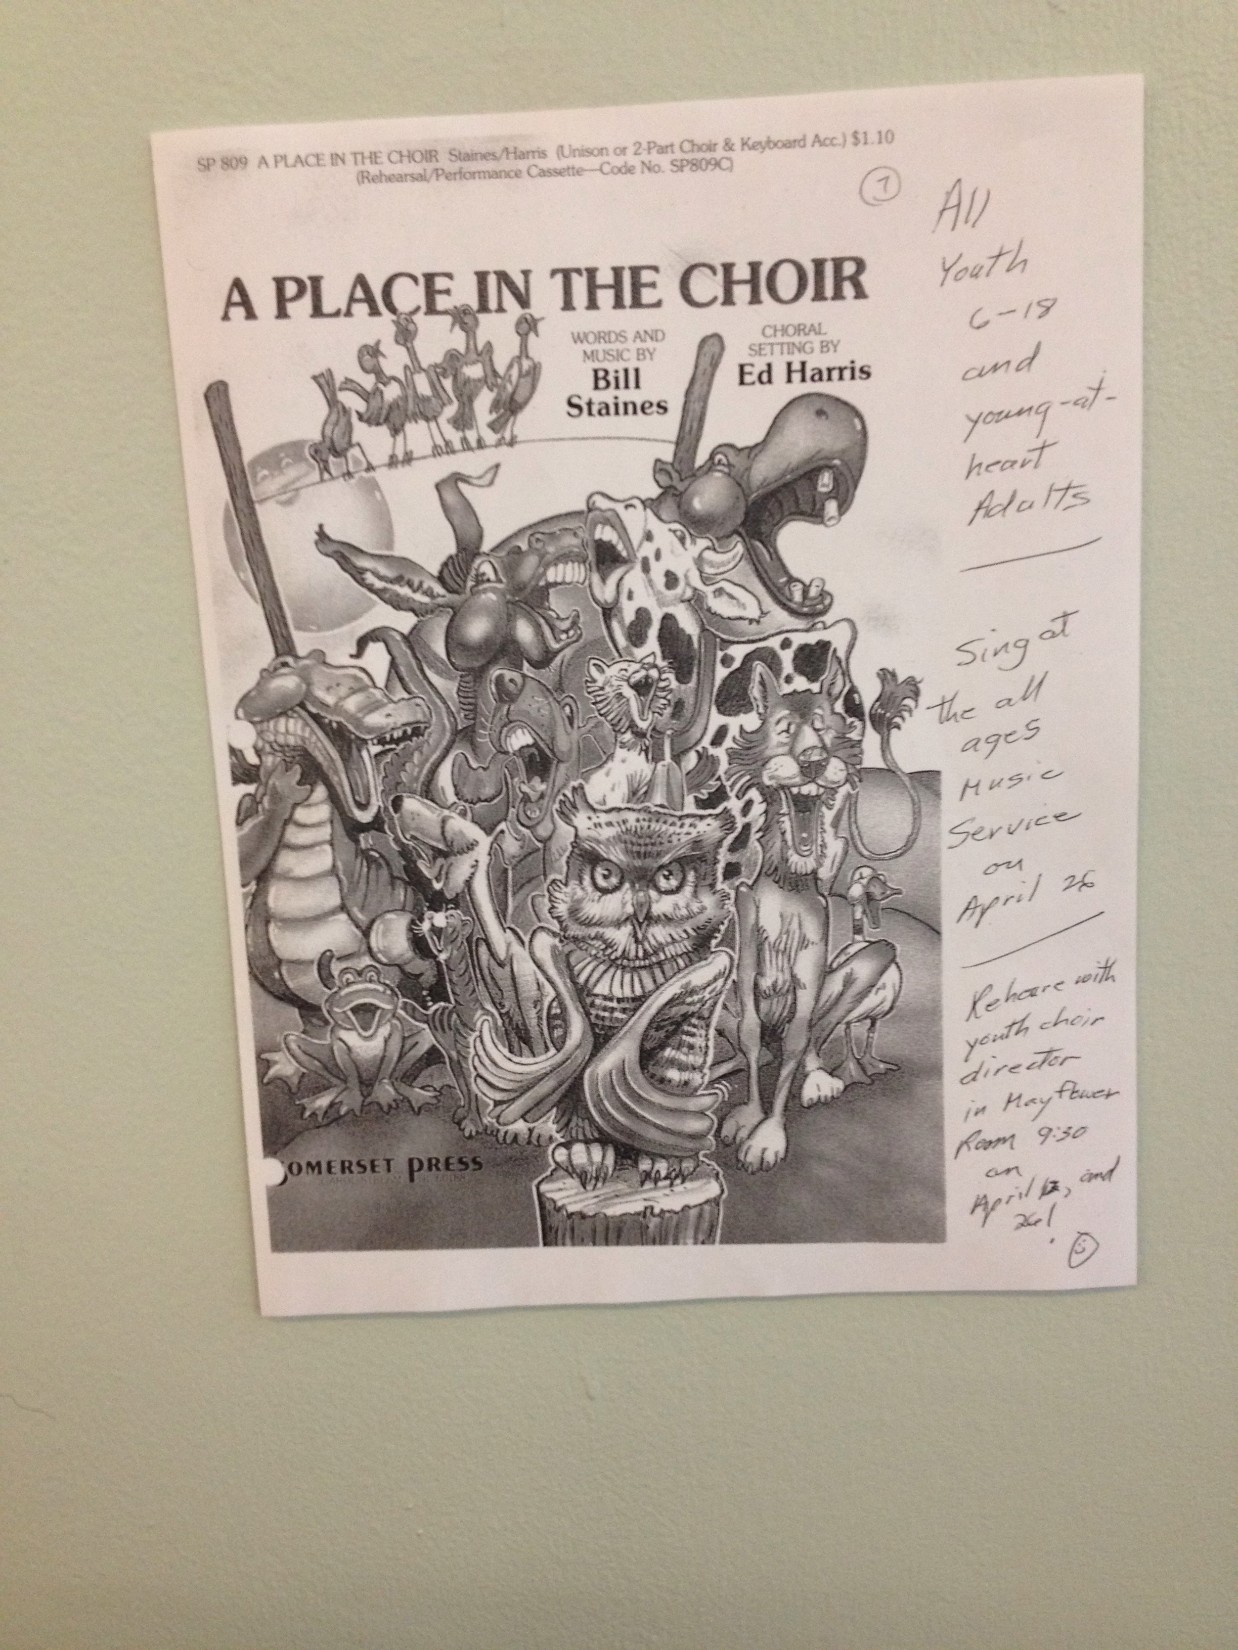 SP 809 A PLACE IN THE CHOIR Staines/Harris (Unison or 2-Part Choir & Keyboard Acc.) $1.10
(Rehearsal/Performance Cassette—Code No. SP809C)
A PLACE IN THE CHOIR
WORDS AND
MUSIC BY
Bill
Staines
CHORAL
SETTING BY
Ed Harris
SOMERSET PRESS
All
Youth
6-18
and
young-at-
heart
Adults
Sing at
the all
ages
Music
Service
on
April 26
Rehearse with
youth choir
director
in Mayflower
Room 9:30
on
April and
26!